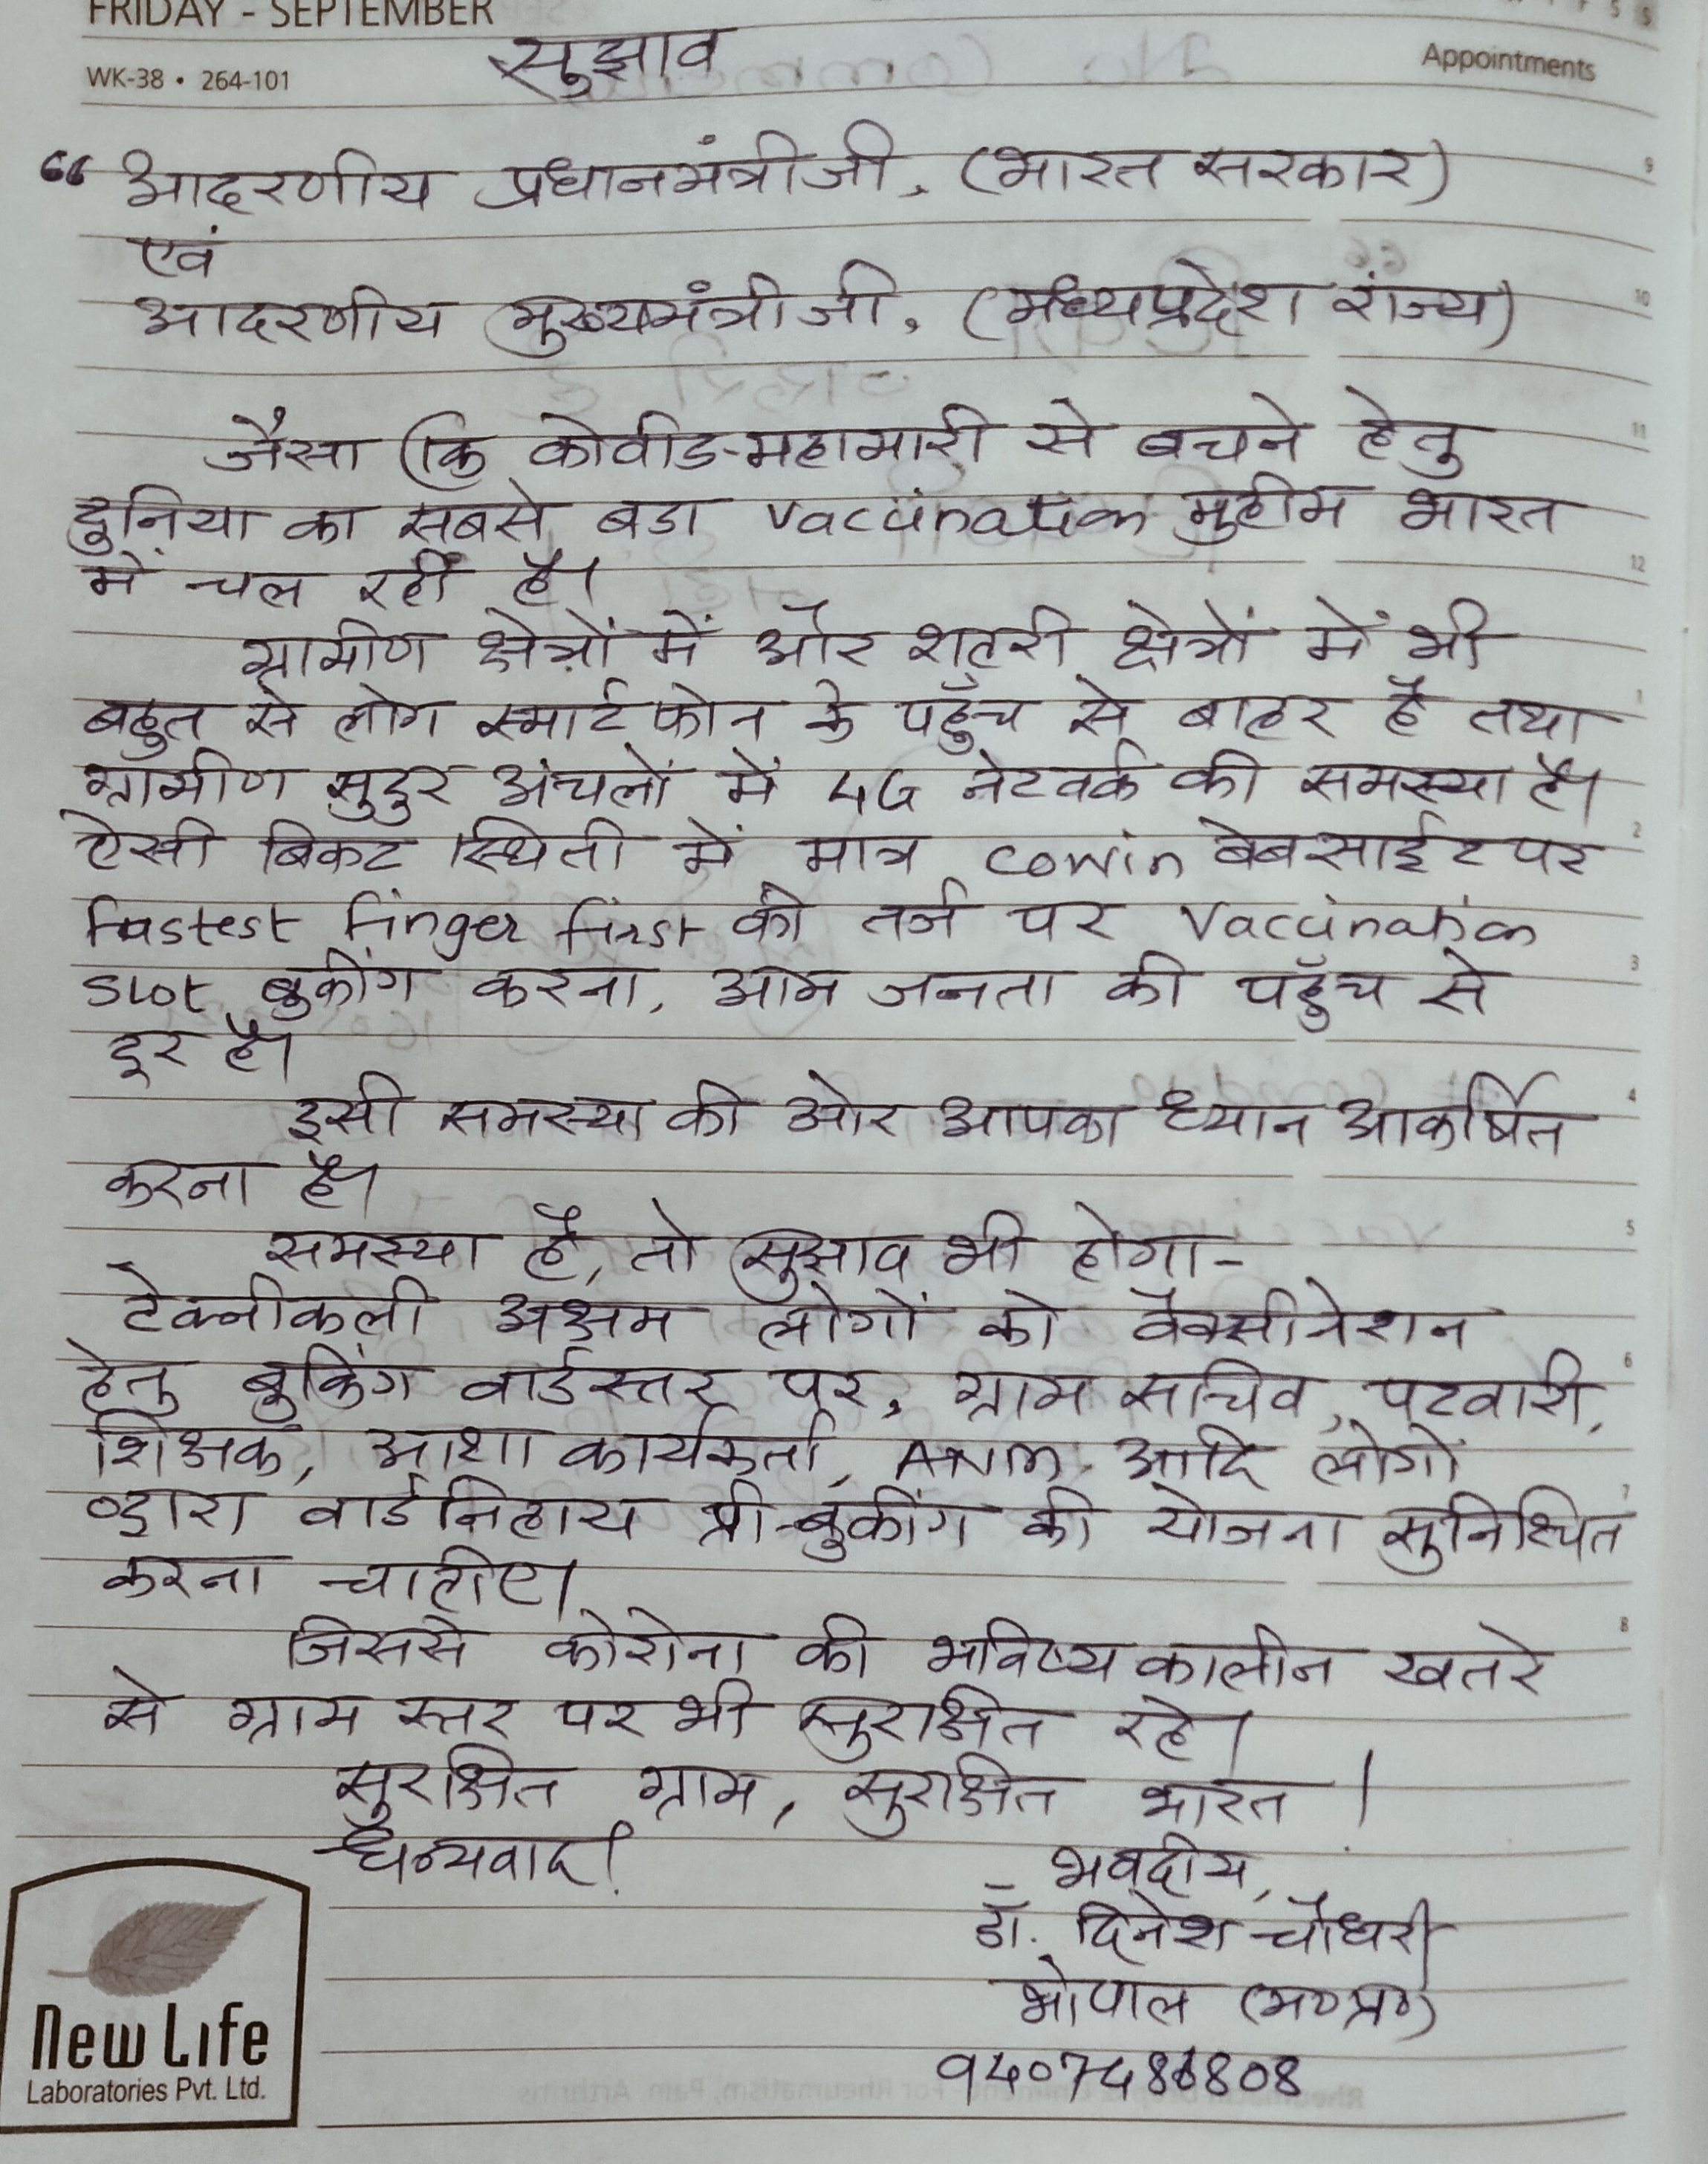 FRIDAY - SEPTEMBER
WK-38 • 264-101
Appointments
सुझाव
“ आदरणीय प्रधानमंत्रीजी, (भारत सरकार)
एवं
आदरणीय मुख्यमंत्रीजी, (मध्यप्रदेश राज्य)
जैसा कि कोवीड-महामारी से बचने हेतु
दुनिया का सबसे बडा vaccination मुहीम भारत
में चल रही है।
ग्रामीण क्षेत्रों में और शहरी क्षेत्रों में भी
बहुत से लोग स्मार्टफोन के पहुँच से बाहर है तथा
ग्रामीण सुदुर अंचलों में 4G नेटवर्क की समस्या है।
ऐसी बिकट स्थिती में मात्र cowin बेबसाईट पर
fastest finger first की तर्ज पर vaccination
slot बुकींग करना, आम जनता की पहुँच से
दूर है।
इसी समस्या की ओर आपका ध्यान आकर्षित
करना है।
समस्या है, तो सुझाव भी होगा-
टेक्नीकली अक्षम लोगों को वैक्सीनेशन
हेतु बुकिंग वार्डस्तर पर, ग्राम सचिव, पटवारी,
शिक्षक, आशा कार्यकर्ता, ANM, आदि लोगों
व्दारा वार्डनिहाय प्री-बुकींग की योजना सुनिश्चित
करना चाहीए।
जिससे कोरोना की भविष्यकालीन खतरे
से ग्राम स्तर पर भी सुरक्षित रहे।
सुरक्षित ग्राम, सुरक्षित भारत।
धन्यवाद!
- भवदीय,
डॉ. दिनेश चौधरी
भोपाल (म०प्र०)
New Life
Laboratories Pvt. Ltd.
9
10
11
12
1
2
3
4
5
6
7
8